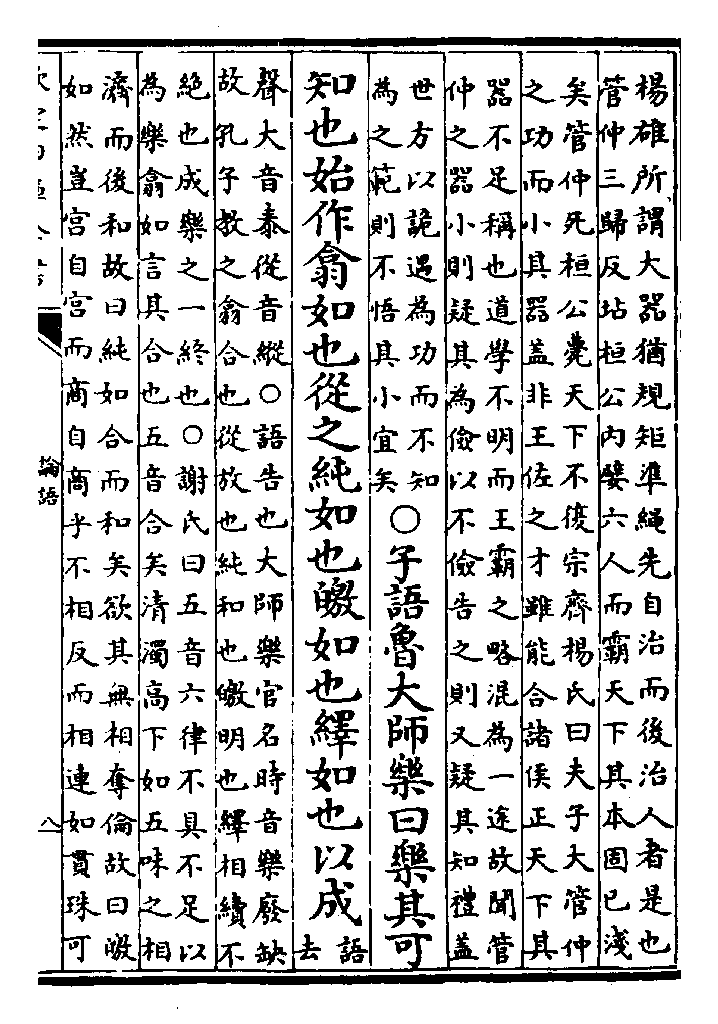 楊雄所謂大器猶規矩準繩先自治而後治人者是也
管仲三歸反坫桓公內嬖六人而霸天下其本固已淺
矣管仲死桓公薨天下不復宗齊楊氏曰夫子大管仲
之功而小其器蓋非王佐之才雖能合諸侯正天下其
器不足稱也道學不明而王霸之略混為一途故聞管
仲之器小則疑其為儉以不儉告之則又疑其知禮蓋
世方以詭遇為功而不知
為之範則不悟其小宜矣
○子語魯大師樂曰樂其可
知也始作翕如也從之純如也皦如也繹如也以成
語
去
聲大音泰從音縱○語告也大師樂官名時音樂廢缺
故孔子教之翕合也從放也純和也皦明也繹相續不
絕也成樂之一終也○謝氏曰五音六律不具不足以
為樂翕如言其合也五音合矣清濁高下如五味之相
濟而後和故曰純如合而和矣欲其無相奪倫故曰皦
如然豈宮自宮而商自商乎不相反而相連如貫珠可
論語
八